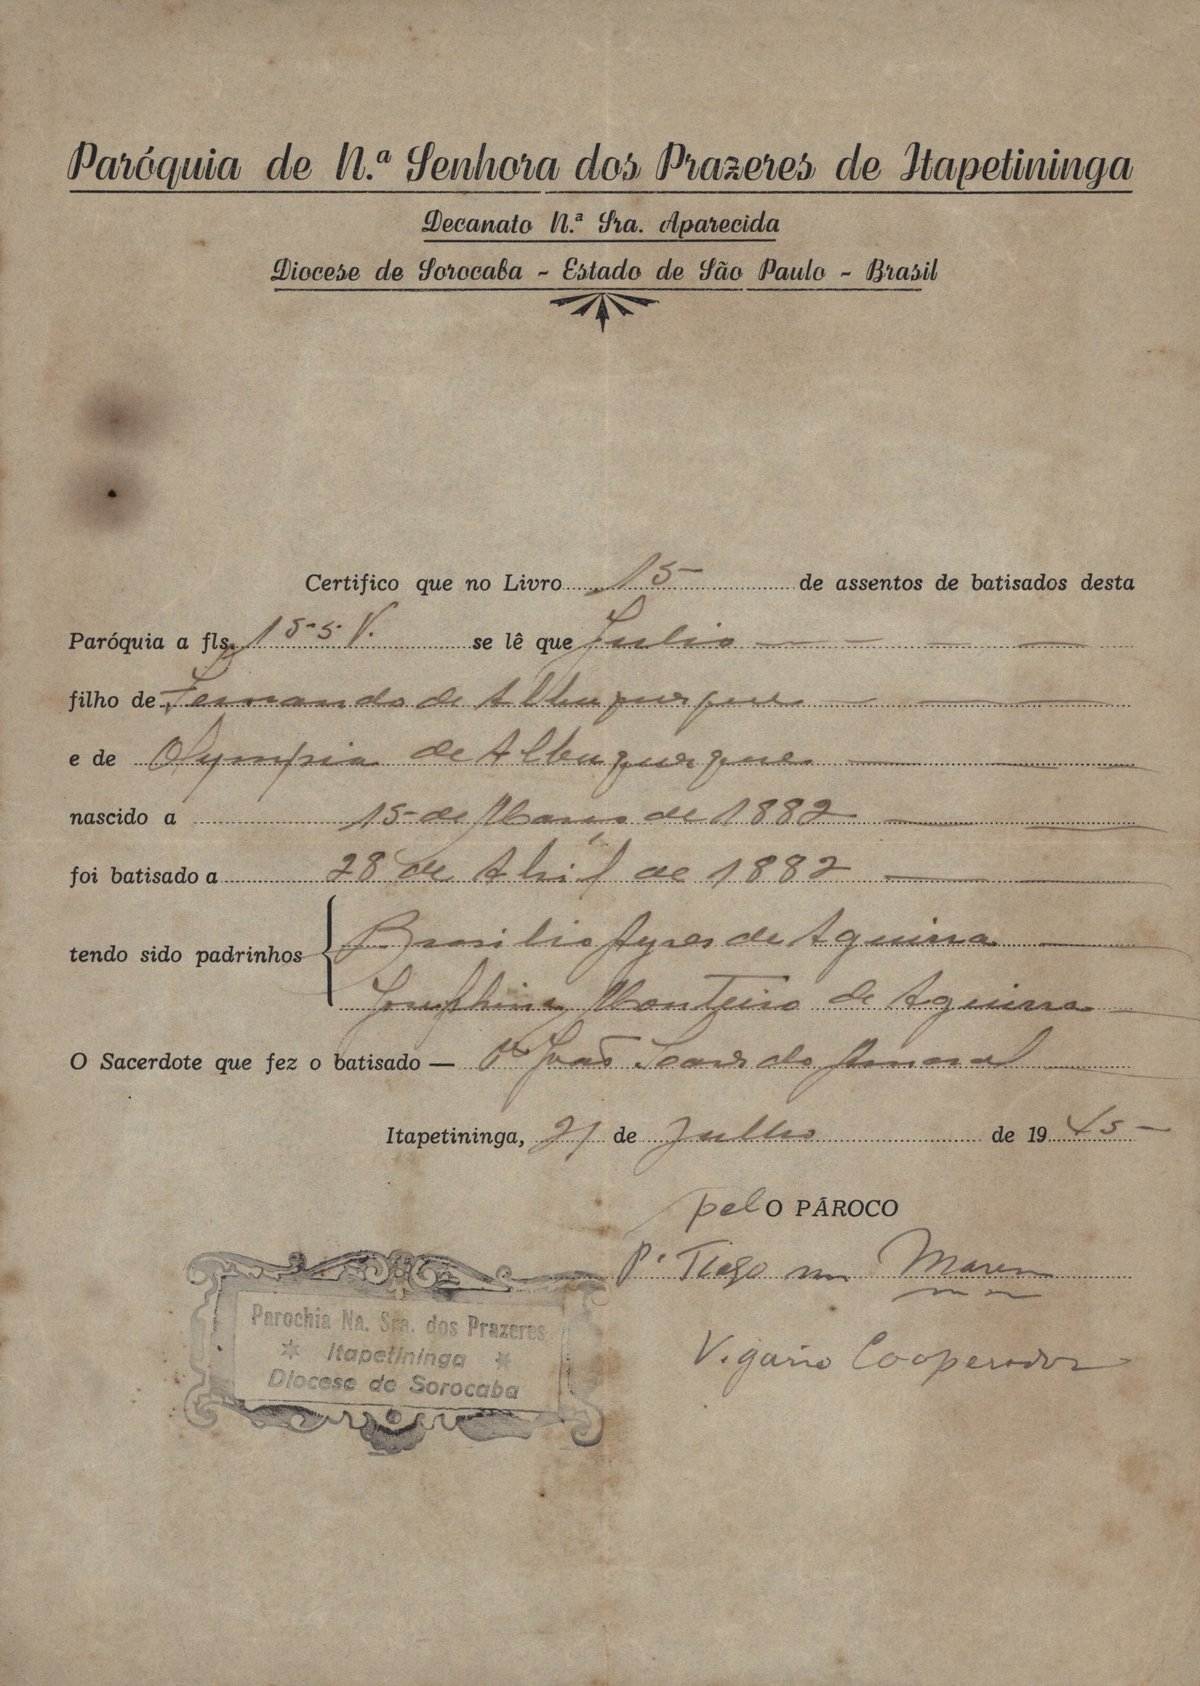 Paróquia de N.ª Senhora dos Prazeres de Itapetininga
Decanato N.ª Sra. Aparecida
Diocese de Sorocaba - Estado de São Paulo - Brasil
Certifico que no Livro 15 de assentos de batisados desta
Paróquia a fls. 155 V. se lê que Julio
filho de Fernando de Albuquerque
e de Olympia de Albuquerque
nascido a 15 de Março de 1882
foi batisado a 28 de Abril de 1882
tendo sido padrinhos Brasilio Ayres de Aguirra
Josephina Monteiro de Aguirra
O Sacerdote que fez o batisado — Pe João Soares do Amaral
Itapetininga, 21 de Julho de 1945
pelO PÁROCO
Pe Tiago
Vigario Cooperador
Parochia Na. Sra. dos Prazeres
* Itapetininga *
Diocese de Sorocaba